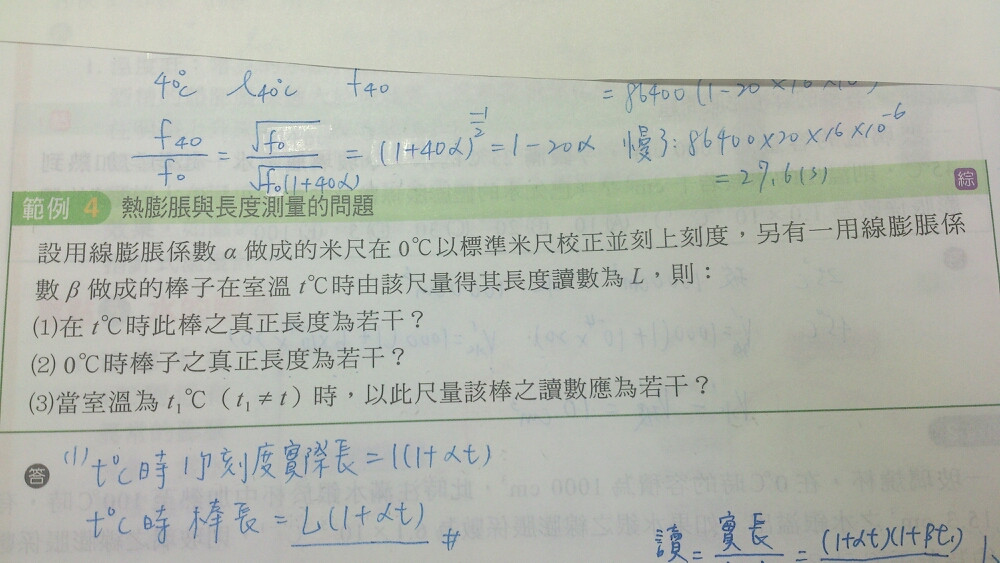 4°C l40°C f40
= 86400 (1-20×16×10
f40/f0 = √f0/√f0(1+40α) = (1+40α)^(-1/2) = 1-20α 慢了: 86400×20×16×10^-6
= 27.6(s)
範例 4 熱膨脹與長度測量的問題 綜
設用線膨脹係數 α 做成的米尺在 0℃以標準米尺校正並刻上刻度，另有一用線膨脹係
數 β 做成的棒子在室溫 t℃時由該尺量得其長度讀數為 L，則：
(1)在 t℃時此棒之真正長度為若干？
(2) 0℃時棒子之真正長度為若干？
(3)當室溫為 t₁℃（t₁≠t）時，以此尺量該棒之讀數應為若干？
答 (1) t°C時 1 刻度實際長=1(1+αt)
t°C時 棒長=L(1+αt) #
讀=實長 = (1+αt)(1+βt₁)